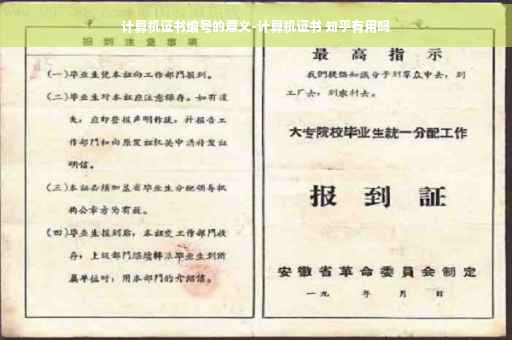 计算机证书编号的意义-计算机证书 知乎有用吗
报到注意事项
(一)毕业生凭本证向工作部门报到。
(二)毕业生对本证应注意保存。如有遗
失，应即登报声明作废，并报告工
作部门和向原发证机关申请补发证
明信。
(三)本证必须加盖省毕业生分配领导机
构公章方为有效。
(四)毕业生报到后，本证交工作部门收
存，上级部门
毕业生到所
属单位时，用本部门的介绍信。
最高指示
我们提倡知识分子到群众中去，到
工厂去，到农村去。
大专院校毕业生統一分配工作
报到証
安徽省革命委員会制定
一九 年 月 日